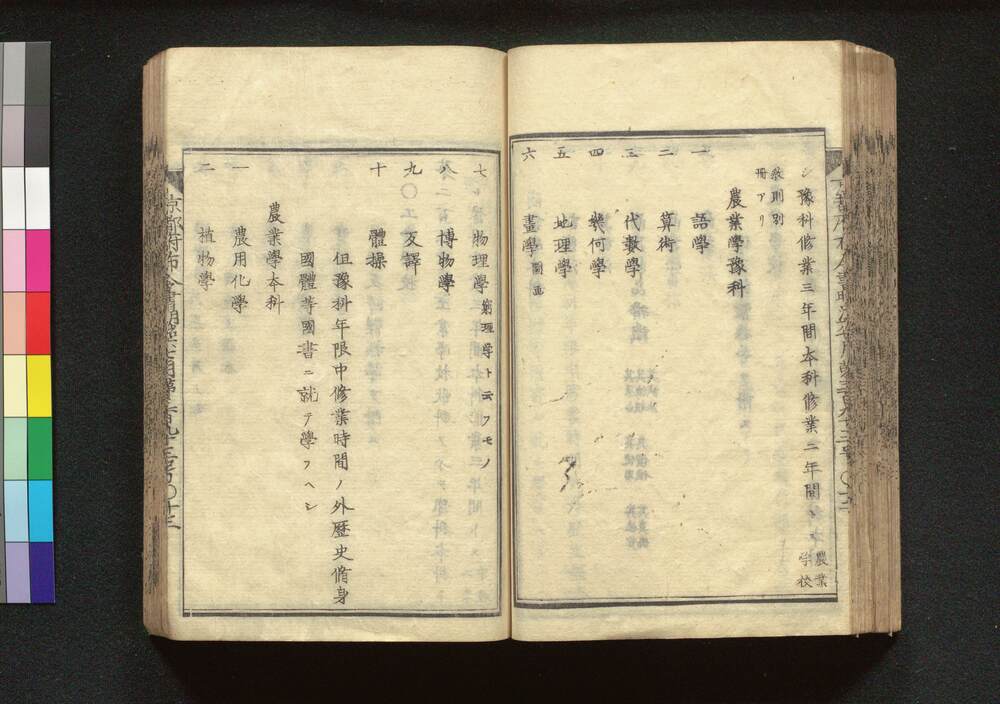 豫科修業三年間本科修業二年間トス 農業
學校
シ教則別
冊アリ
農業學豫科
一 語學
二 算術
三 代數學
四 幾何學
五 地理學
六 畫學 圖画
七 物理學 窮理學ト云フモノ
八 博物學
九 反譯
十 體操
但豫科年限中修業時間ノ外歷史脩身
國體等國書ニ就テ學フヘシ
農業學本科
一 農用化學
二 植物學